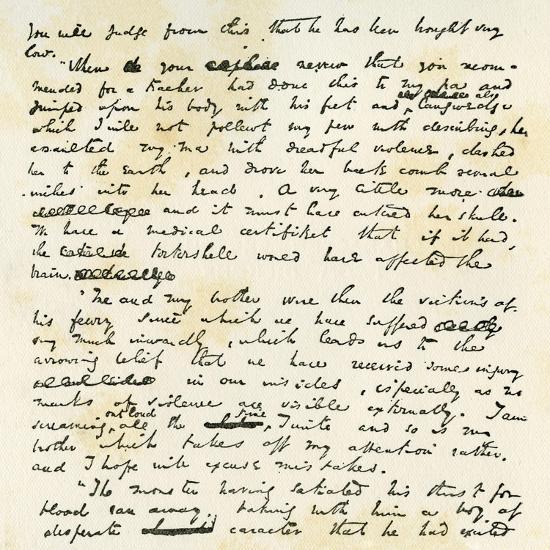 You will judge from this that he has been brought very
low.
"When your nevew that you recom-
mended for a teacher had done this to my pa and
jumped upon his body with his feet and also langwedge
which I will not pollewt my pen with describing, he
assailted my ma with dreadful violence, dashed
her to the earth, and drove her back comb several
inches into her head. A very little more
and it must have entered her skull.
We have a medical certifiket that if it had,
the tortershell would have affected the
brain.
"Me and my brother were then the victims of
his feury since which we have suffered
very much inwardly, which leads us to the
arrowing belief that we have received some injury
in our insides, especially as no
marks of violence are visible externally. I am
screaming out loud all the time I write and so is my
brother which takes off my attention rather,
and I hope will excuse mistakes.
"The monster having satiated his thirst for
blood ran away, taking with him a boy of
desperate caracter that he had excited